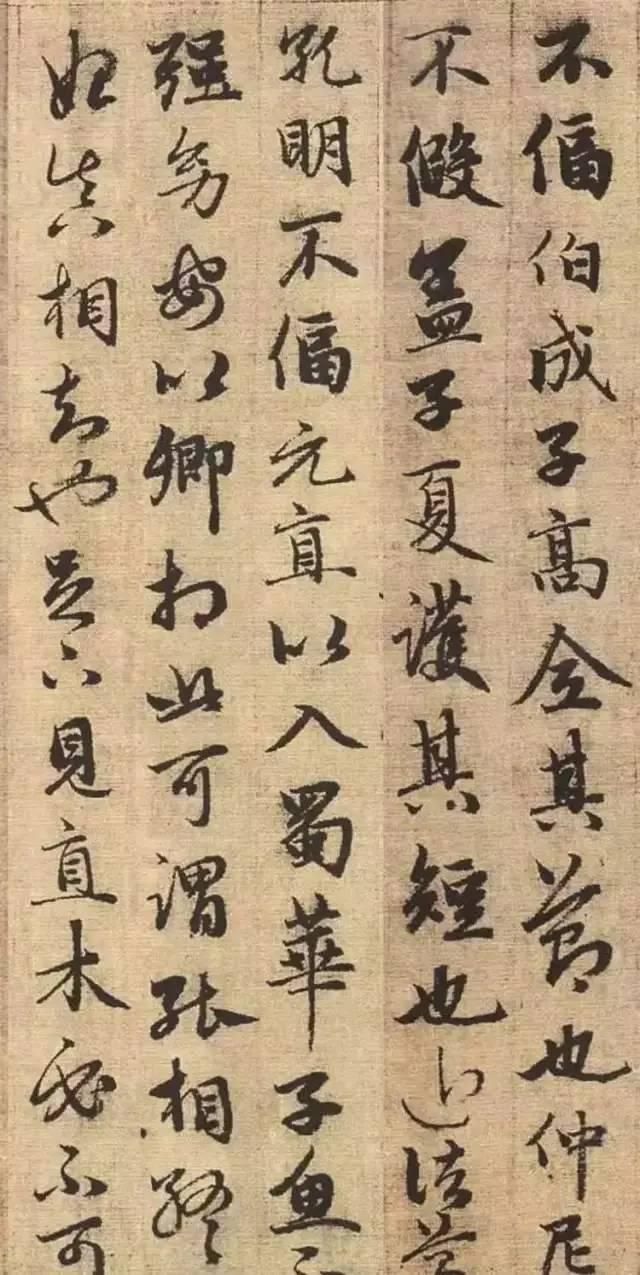 不偪伯成子高全其節也仲尼
不假盖子夏護其短也近諸葛
孔明不偪元直以入蜀華子魚不
强幼安以卿相此可謂能相終
始真相知也足下見直木必不可